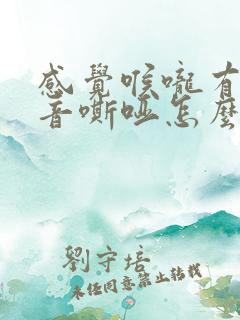 感覺喉嚨有
音嘶啞怎麼
劉守培
未经同意禁止转载